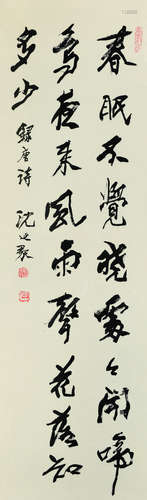 春眠不覺曉處々聞啼
鳥夜来風雨聲花落知
多少 錄唐诗 沈